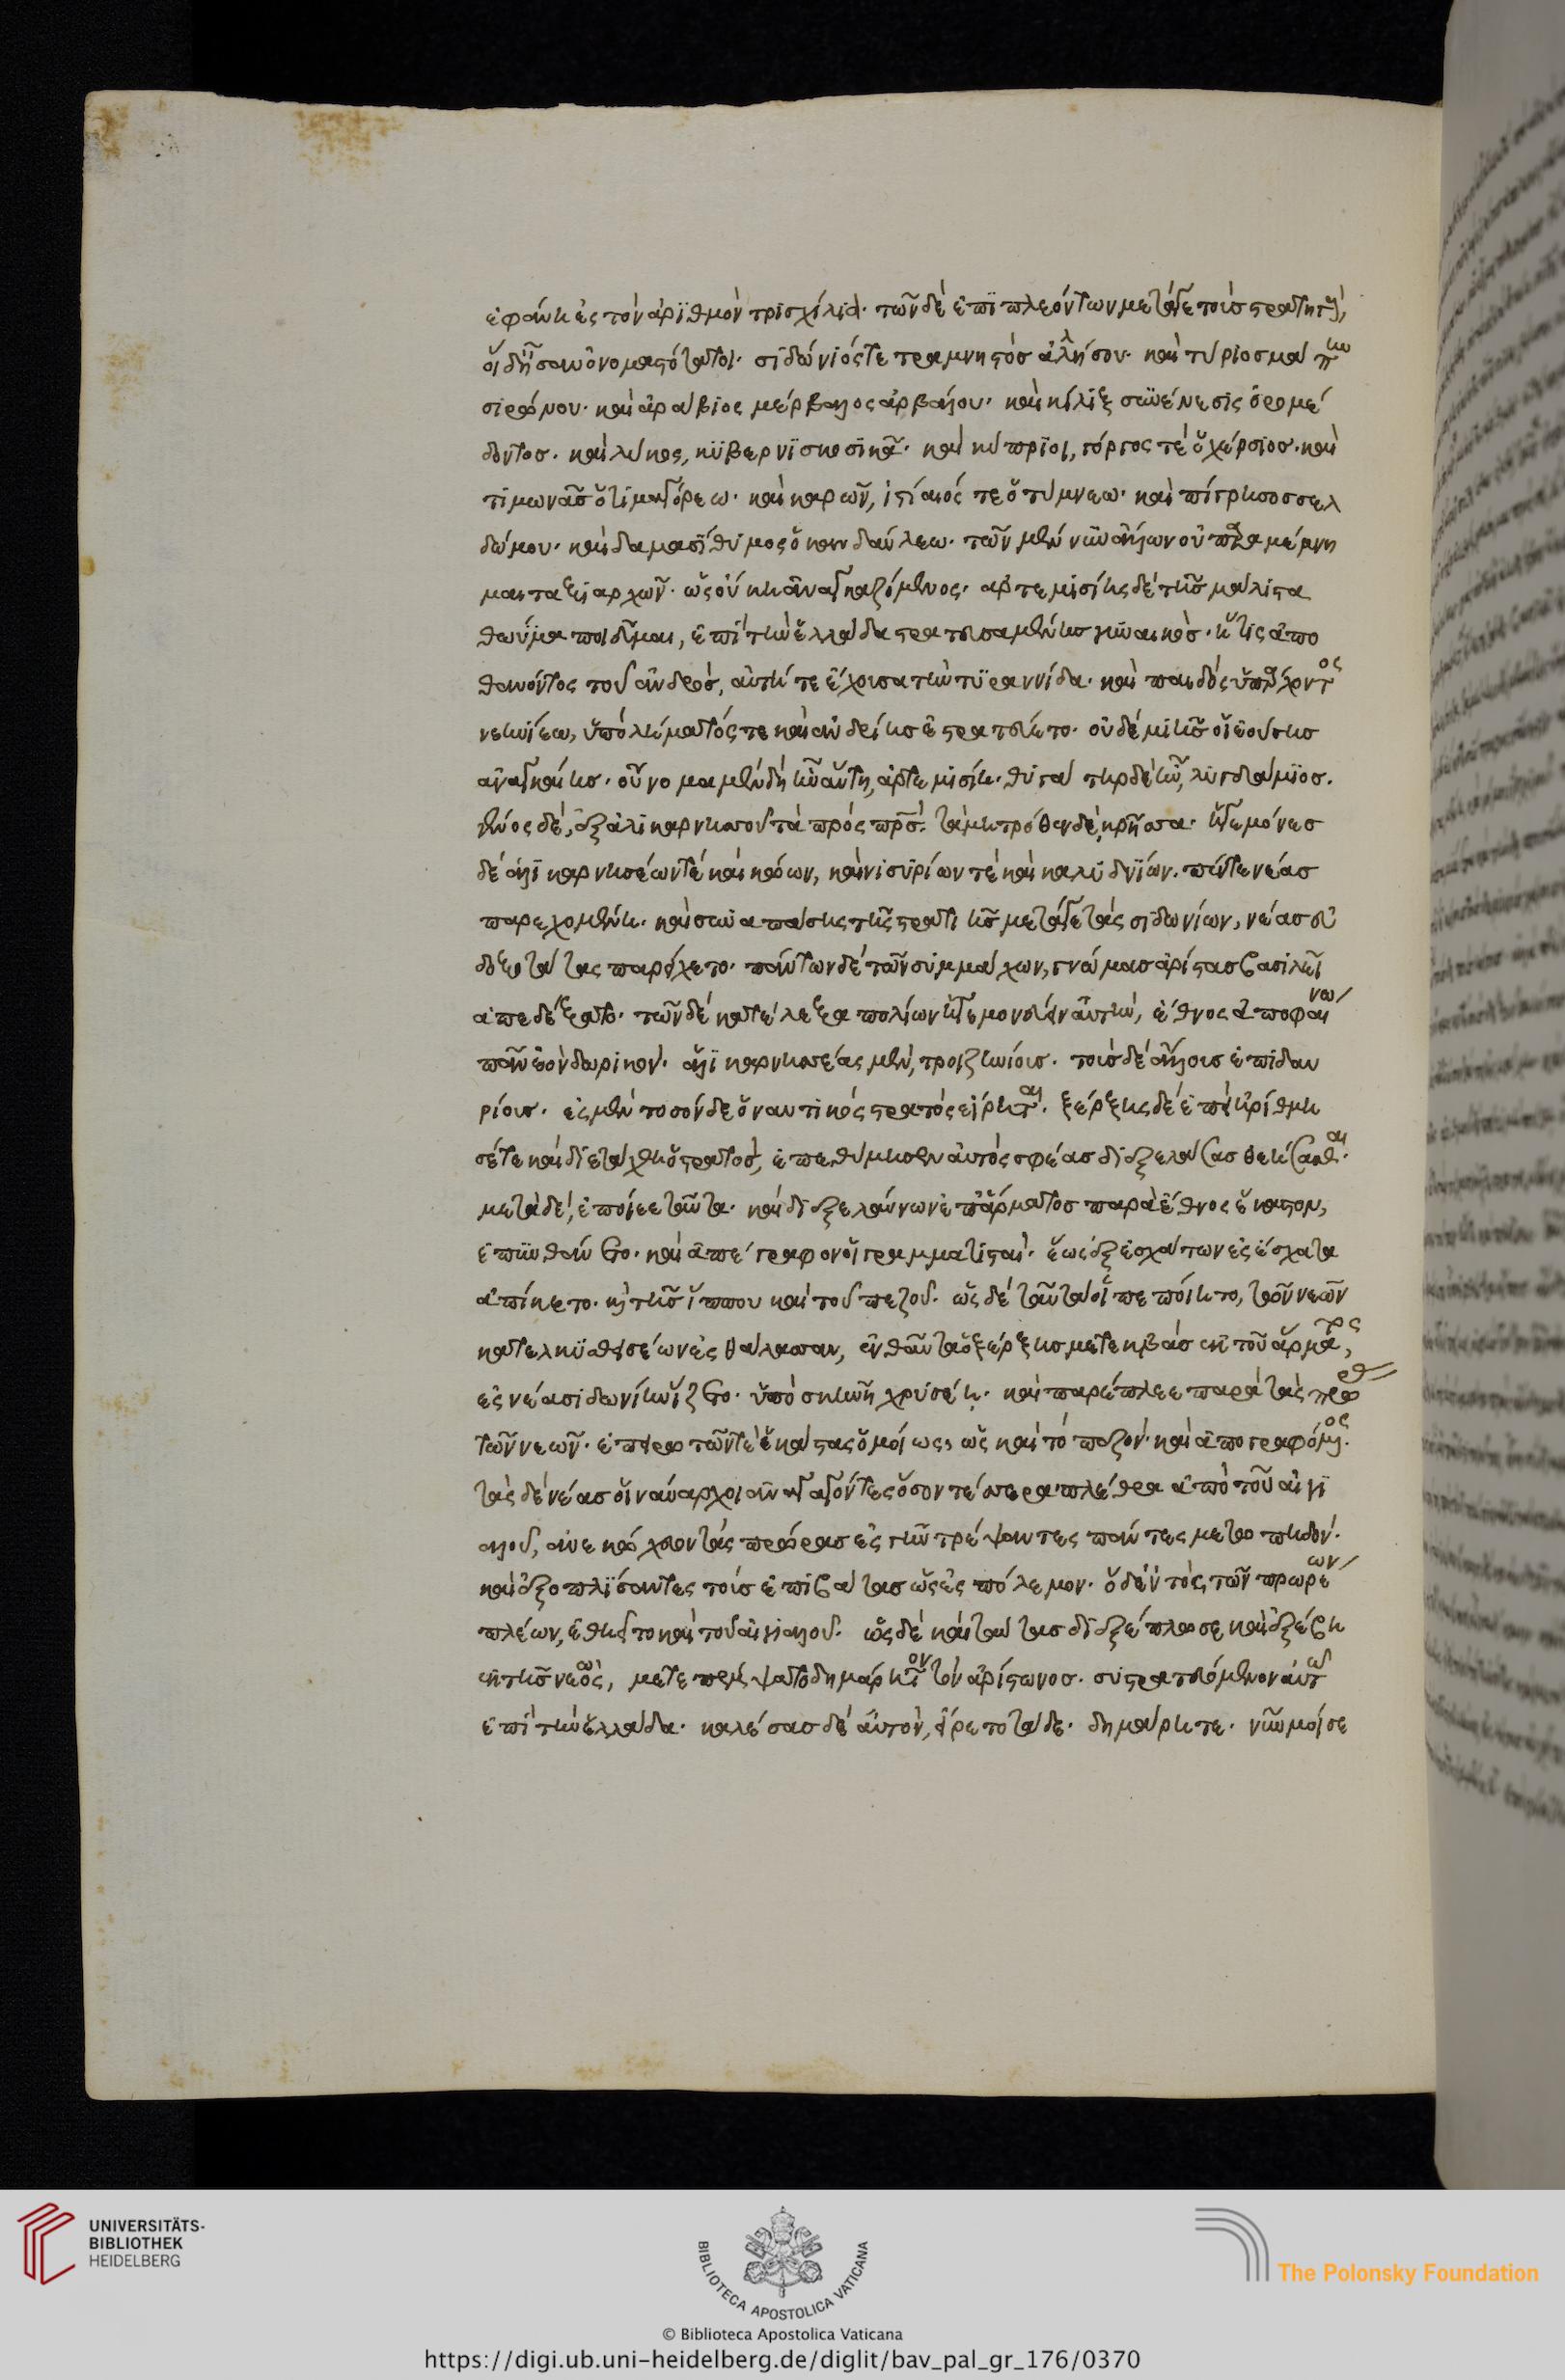 ἐφάνη ἐς τὸν ἀριθμὸν τρισχίλια· τῶν δὲ ἐπιπλεόντων μετά γε τοὺς στρατηγοὺς,
οἵδε ἦσαν ὀνομαστότατοι· σιδώνιός τε τετραμνηστὸς ἀλλήσου· καὶ τύριος μαπὴν
σιρώμου· καὶ ἀράβιος μέρβαλος ἀρβάλου· καὶ κίλιξ συέννεσις ὀρομέ
δοντος· καὶ λύκος, κυβερνίσκο σίκα· καὶ κύπριοι, γόργος τε ὁ χέρσιος· καὶ
τιμωνᾶξ ὁ τιμαγόρεω· καὶ καρῶν, ἱστιαιός τε ὁ τύμνεω· καὶ πίγρης ὁ σσελ
δώμου· καὶ δαμασίθυμος ὁ κανδαύλεω· τῶν μέν νυν ἄλλων οὐ παραμέμνη
μαι ταξιαρχῶν· ὡς οὐκ ἀναγκαζόμενος· ἀρτεμισίης δὲ τῆς μάλιστα
θωύμα ποιεῦμαι, ἐπὶ τὴν ἑλλάδα στρατευσαμένης γυναικὸς· ἥτις ἀπο
θανόντος τοῦ ἀνδρὸς, αὐτή τε ἔχουσα τὴν τυραννίδα· καὶ παιδὸς ὑπάρχοντος
νεηνίεω, ὑπὸ λήματός τε καὶ ἀνδρείης ἐστρατεύετο· οὐδεμιῆς οἱ ἐούσης
ἀναγκαίης· οὔνομα μὲν δὴ ἦν αὐτῇ, ἀρτεμισίη· θυγάτηρ δὲ ἦν, λυγδάμιος·
γένος δὲ, ἐξ ἁλικαρνησσοῦ τὰ πρὸς πρς· τὰ μητρόθεν δὲ, κρῆσσα· ἡγεμόνευε
δὲ ἁλικαρνησέων τε καὶ κώων, καὶ νισυρίων τε καὶ καλυδνίων· πέντε νέας
παρεχομένη· καὶ συναπάσης τῆς στρατιῆς μετά γε τὰς σιδωνίων, νέας εὐ
δοξωτάτας παρείχετο· πάντων δὲ τῶν συμμάχων, γνώμας ἀρίστας βασιλέϊ
ἀπεδέξατο· τῶν δὲ κατέλεξα πολίων ἡγεμονεύειν αὐτὴν, ἔθνος ἀποφαίνω
πᾶν ἐὸν δωρικὸν· ἁλικαρνησέας μὲν, τροιζηνίους· τοὺς δὲ ἄλλους ἐπιδαυ
ρίους· ἐς μὲν τοσόνδε ὁ ναυτικὸς στρατὸς εἴρηται· ξέρξης δὲ ἐπεὶ ἠρίθμη
σέ τε καὶ διετάχθη ὁ στρατὸς, ἐπεθύμησεν αὐτὸς σφέας διεξελάσας θεήσασθαι·
μετὰ δὲ, ἐποίεε ταῦτα· καὶ διεξελαύνων ἐπ' ἅρματος παρὰ ἔθνος ἕκαστον,
ἐπυνθάνετο· καὶ ἀπέγραφον οἱ γραμματισταὶ· ἕως ἐξ ἐσχάτων ἐς ἔσχατα
ἀπίκετο· κὴ τῆς ἵππου καὶ τοῦ πεζοῦ· ὡς δὲ ταῦτα οἱ πεποίητο, τῶν νεῶν
κατελκυσθεισέων ἐς θάλασσαν, ἐνθαῦτα ὁ ξέρξης μετεκβὰς ἐκ τοῦ ἅρματος,
ἐς νέα σιδωνίην ἵζετο· ὑπὸ σκηνῇ χρυσέῃ· καὶ παρέπλεε παρὰ τὰς πρώρας
τῶν νεῶν· ἐπειρωτῶν τε ἑκάστας ὁμοίως, ὡς καὶ τὸ πεζὸν· καὶ ἀπογραφόμενος·
τὰς δὲ νέας οἱ ναύαρχοι ἀναγαγόντες ὅσον τέσσερα πλέθρα ἀπὸ τοῦ αἰγι
αλοῦ, ἀνεκώχευον τὰς πρώρας ἐς γῆν τρέψαντες πάντες μετωπηδὸν·
καὶ ἐξοπλίσαντες τοὺς ἐπιβάτας ὡς ἐς πόλεμον· ὁ δὲ ἐντὸς τῶν πρωρέων
πλέων, ἐθηεῖτο καὶ τοῦ αἰγιαλοῦ· ὡς δὲ καὶ ταύτας διεξέπλωσε, καὶ ἐξέβη
ἐκ τῆς νεὸς, μετεπέμψατο δημάρητον τὸν ἀρίστωνος· συστρατευόμενον αὐτῷ
ἐπὶ τὴν ἑλλάδα· καλέσας δὲ αὐτὸν, εἴρετο τάδε· δημάρητε· νῦν μοί σε
UNIVERSITÄTS-
BIBLIOTHEK
HEIDELBERG
BIBLIOTECA APOSTOLICA VATICANA
The Polonsky Foundation
© Biblioteca Apostolica Vaticana
https://digi.ub.uni-heidelberg.de/diglit/bav_pal_gr_176/0370